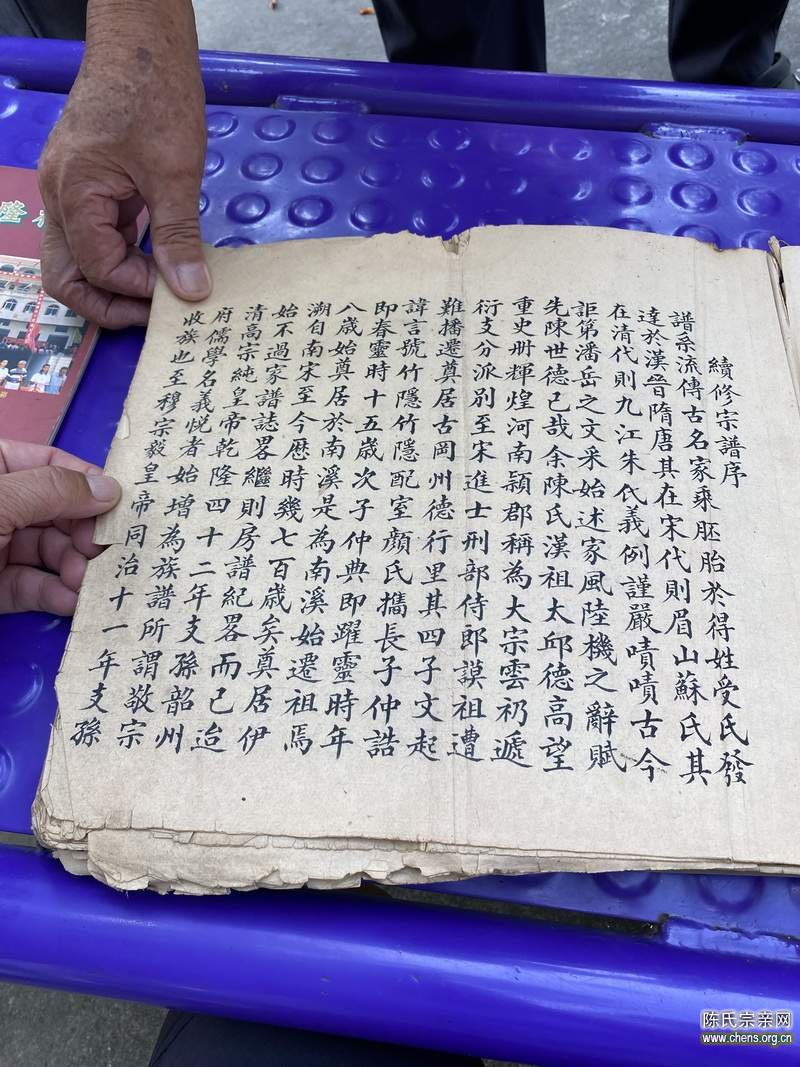 續修宗譜序
譜系流傳古名家乘胚胎於得姓受氏發
達於漢晉隋唐其在宋代則眉山蘇氏其
在清代則九江朱氏義例謹嚴嘖嘖古今
詎第潘岳之文采始述家風陸機之辭賦
先陳世德已哉余陳氏漢祖太邱德高望
重史册輝煌河南潁郡稱為大宗雲礽遞
衍支分派別至宋進士刑部侍郎謨祖遭
難播遷奠居古岡州德行里其四子文起
諱言號竹隱竹隱配室顏氏攜長子仲誥
即春靈時十五歲次子仲典即躍靈時年
八歲始奠居於南溪是為南溪始遷祖焉
溯自南宋至今歷時幾七百歲矣奠居伊
始不過家譜誌畧繼則房譜紀畧而已迨
清高宗純皇帝乾隆四十二年支孫韶州
府儒學名義悅者始增為族譜所謂敬宗
收族也至穆宗毅皇帝同治十一年支孫
隆
陈氏宗亲网
www.chens.org.cn